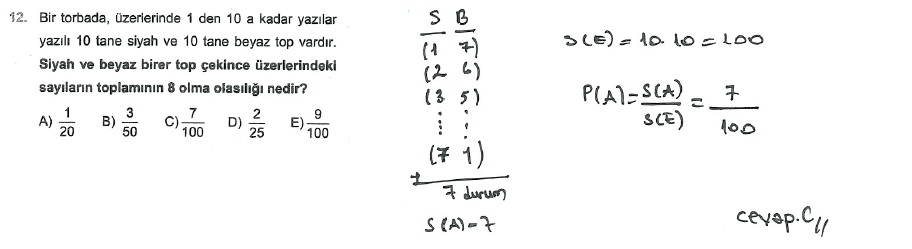 12. Bir torbada, üzerlerinde 1 den 10 a kadar yazılar
yazılı 10 tane siyah ve 10 tane beyaz top vardır.
Siyah ve beyaz birer top çekince üzerlerindeki
sayıların toplamının 8 olma olasılığı nedir?
A) 1/20 B) 3/50 C) 7/100 D) 2/25 E) 9/100
S B
(1 7)
(2 6)
(3 5)
⋮ ⋮
(7 1)
+
7 durum
S(A)=7
S(E) = 10.10 = 100
P(A) = S(A)/S(E) = 7/100
cevap.C//